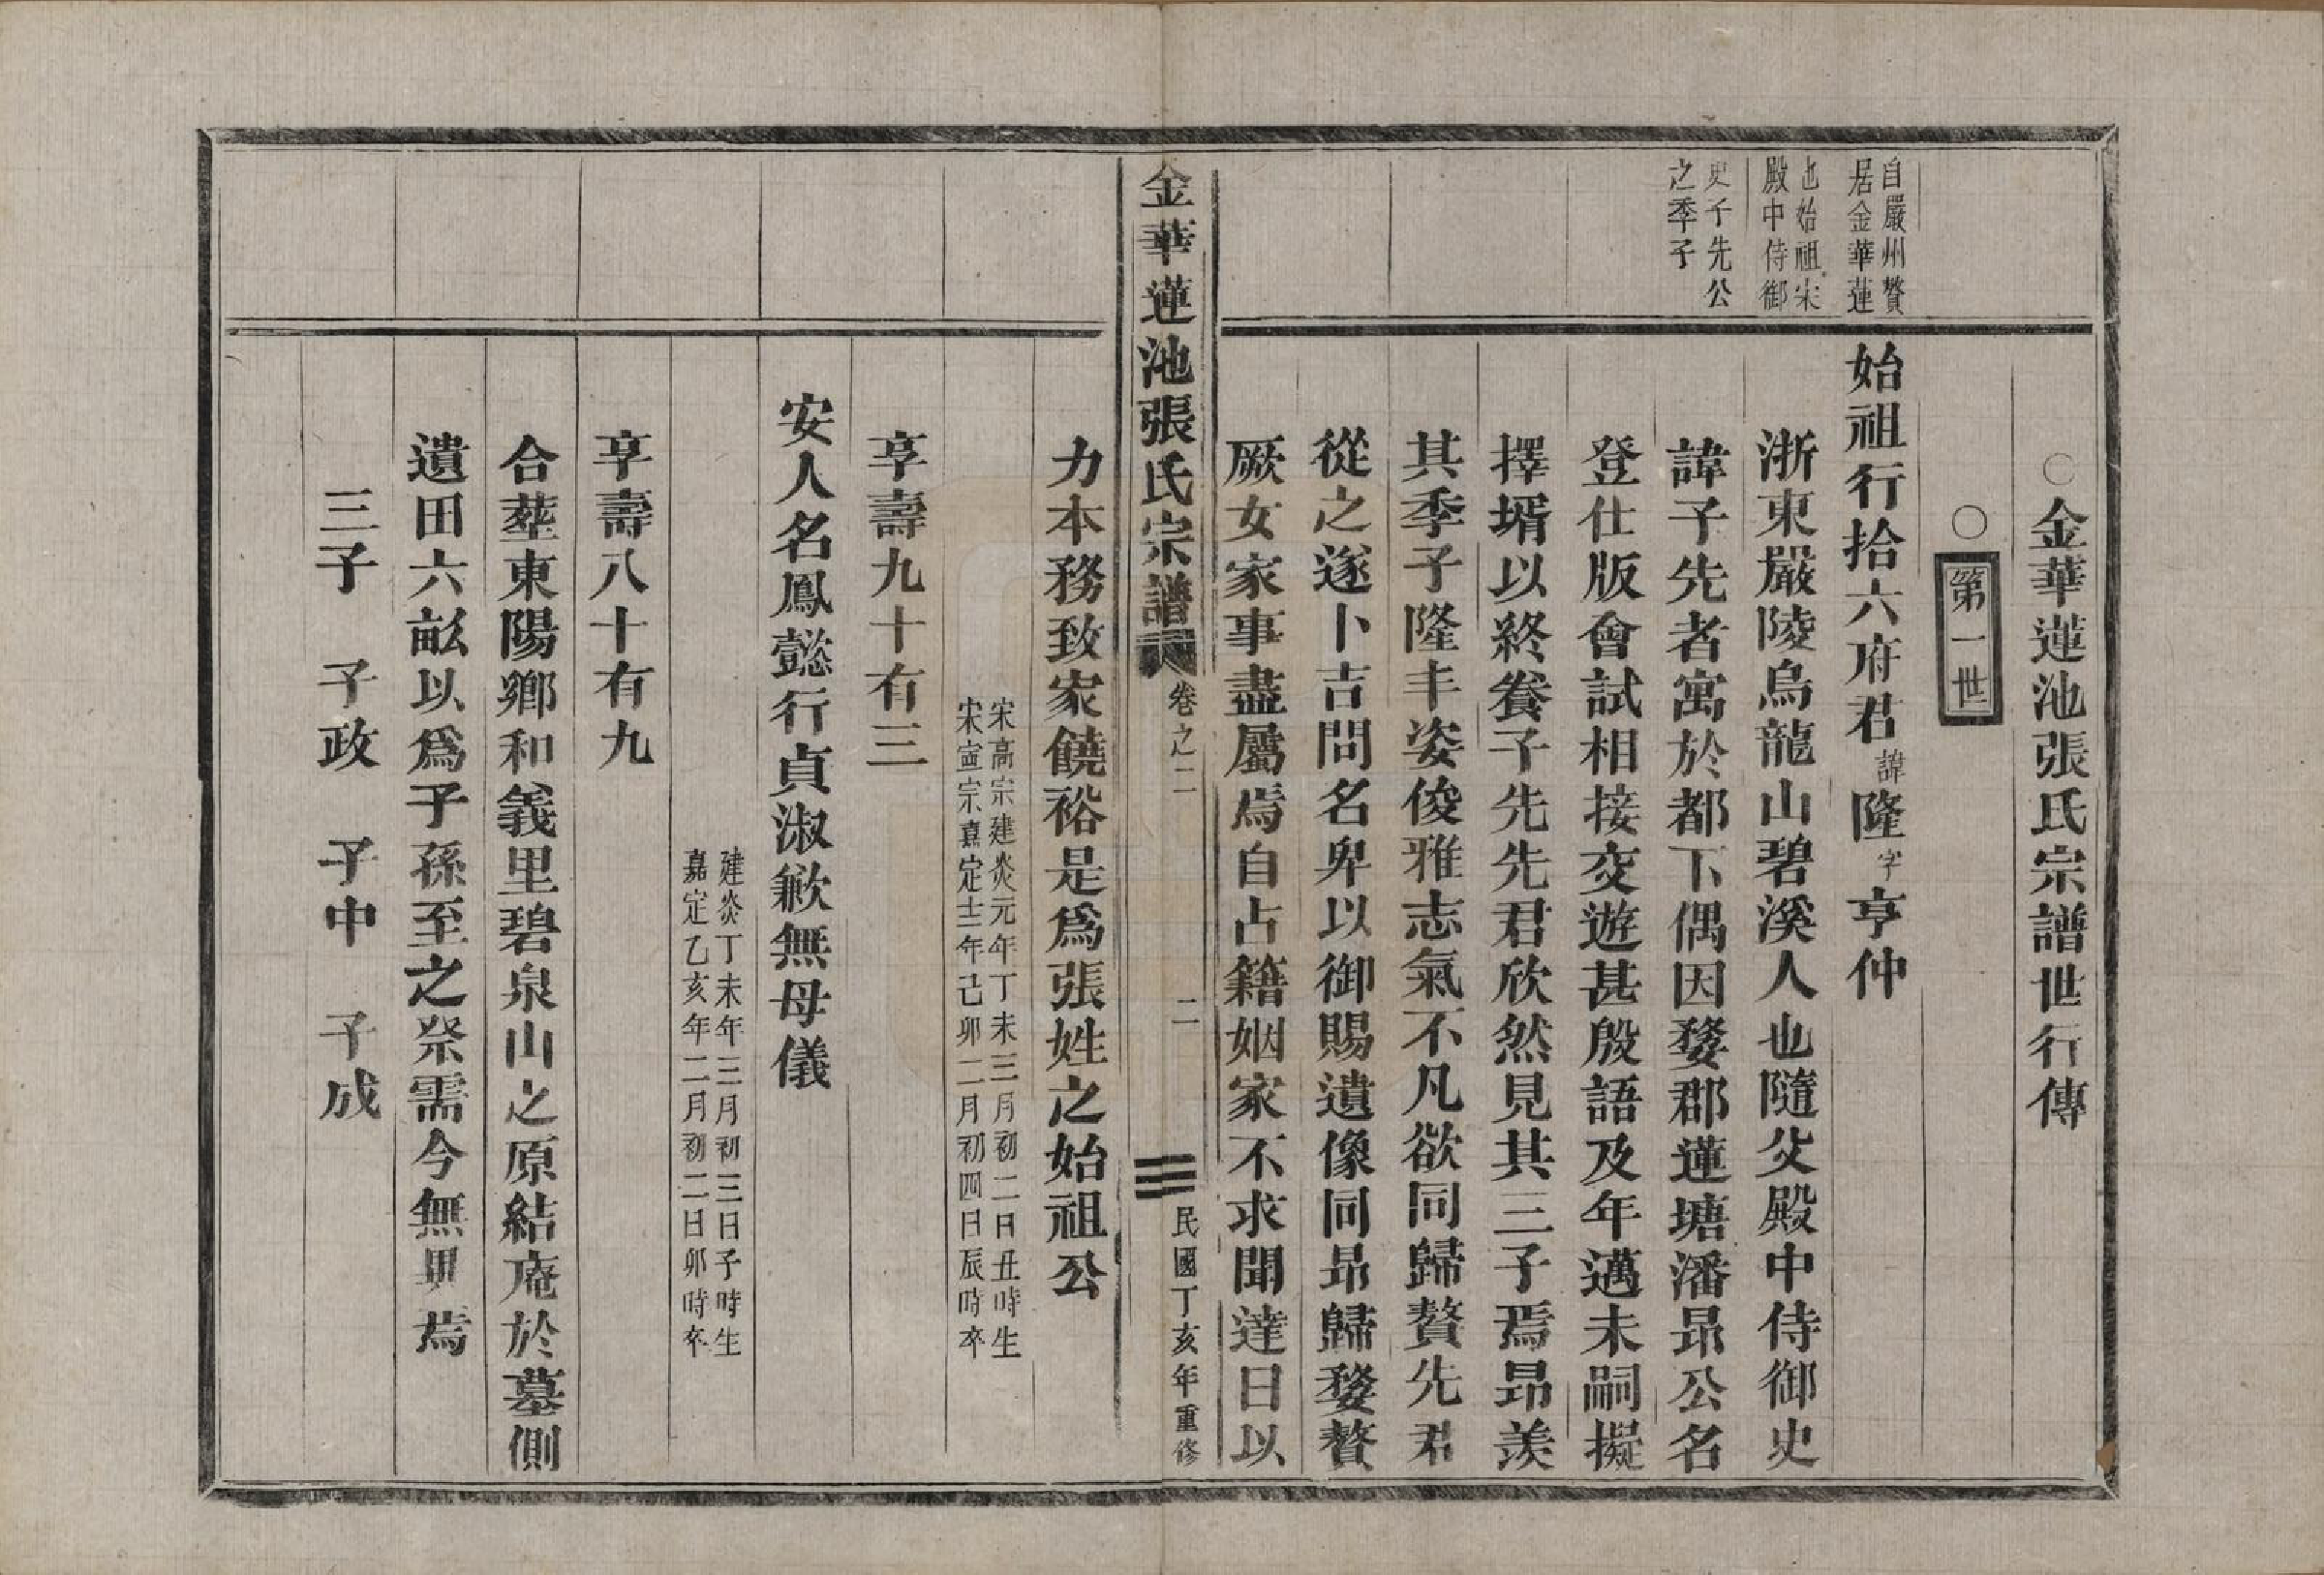 ○金華蓮池張氏宗譜世行傳
○第一世
自嚴州贅
居金華蓮
始祖行拾六府君諱隆字亨仲
池始祖宋
殿中侍御
浙東嚴陵烏龍山碧溪人也隨父殿中侍御史
史子先公
之季子
諱子先者寓於都下偶因婺郡蓮塘潘昂公名
登仕版會試相接交遊甚殷語及年邁未嗣擬
擇壻以終養子先先君欣然見其三子焉昂羨
其季子子隆丰姿俊雅志氣不凡欲同歸贅先君
從之遂卜吉問名卑以御賜遺像同昂歸婺贅
厥女家事盡屬焉自占籍姻家不求聞達日以
金華蓮池張氏宗譜 卷之二 二 民國丁亥年重修
力本務致家饒裕是爲張姓之始祖公
宋高宗建炎元年丁未三月初二日丑時生
宋寧宗嘉定十二年己卯二月初四日辰時卒
享壽九十有三
安人名鳳懿行貞淑歉無母儀
建炎丁未年三月初三日子時生
嘉定乙亥年二月初二日卯時卒
享壽八十有九
合塟東陽鄉和義里碧泉山之原結庵於墓側
遺田六畝以爲子孫至之祭需今無畀焉
三子 子政 子中 子成